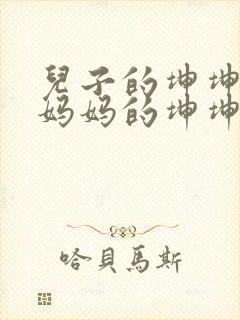 兒子的坤坤
妈妈的坤坤
哈貝馬斯